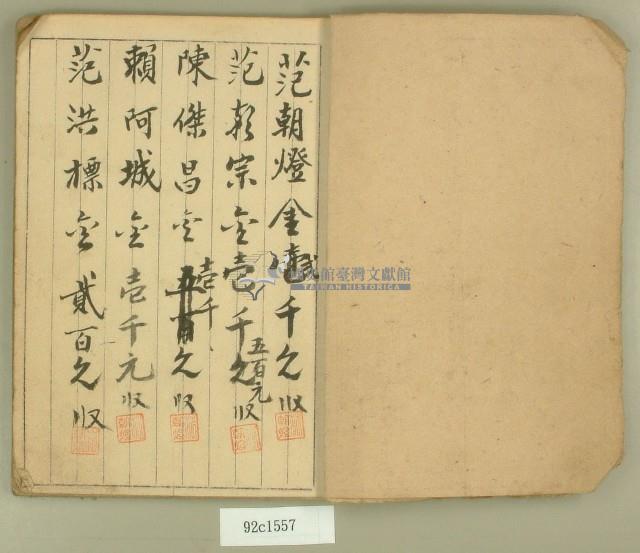 范朝燈金貳千元收
范彩宗金壹千五百元收
陳傑昌金壹千元收
賴阿城金壹千元收
范洪標金貳百元收
國史館臺灣文獻館
TAIWAN HISTORICA
92c1557